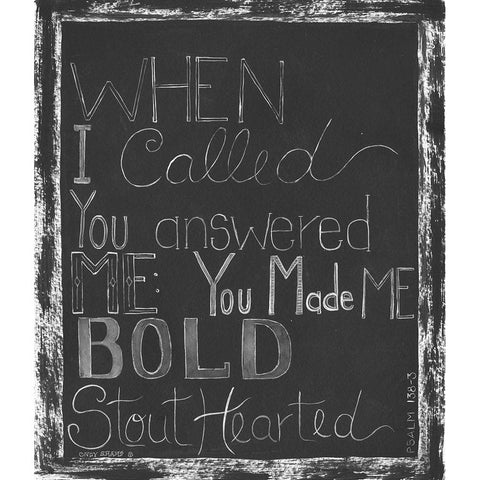 WHEN
I Called
You answered
ME: You Made ME
BOLD
Stout Hearted
PSALM 138-3